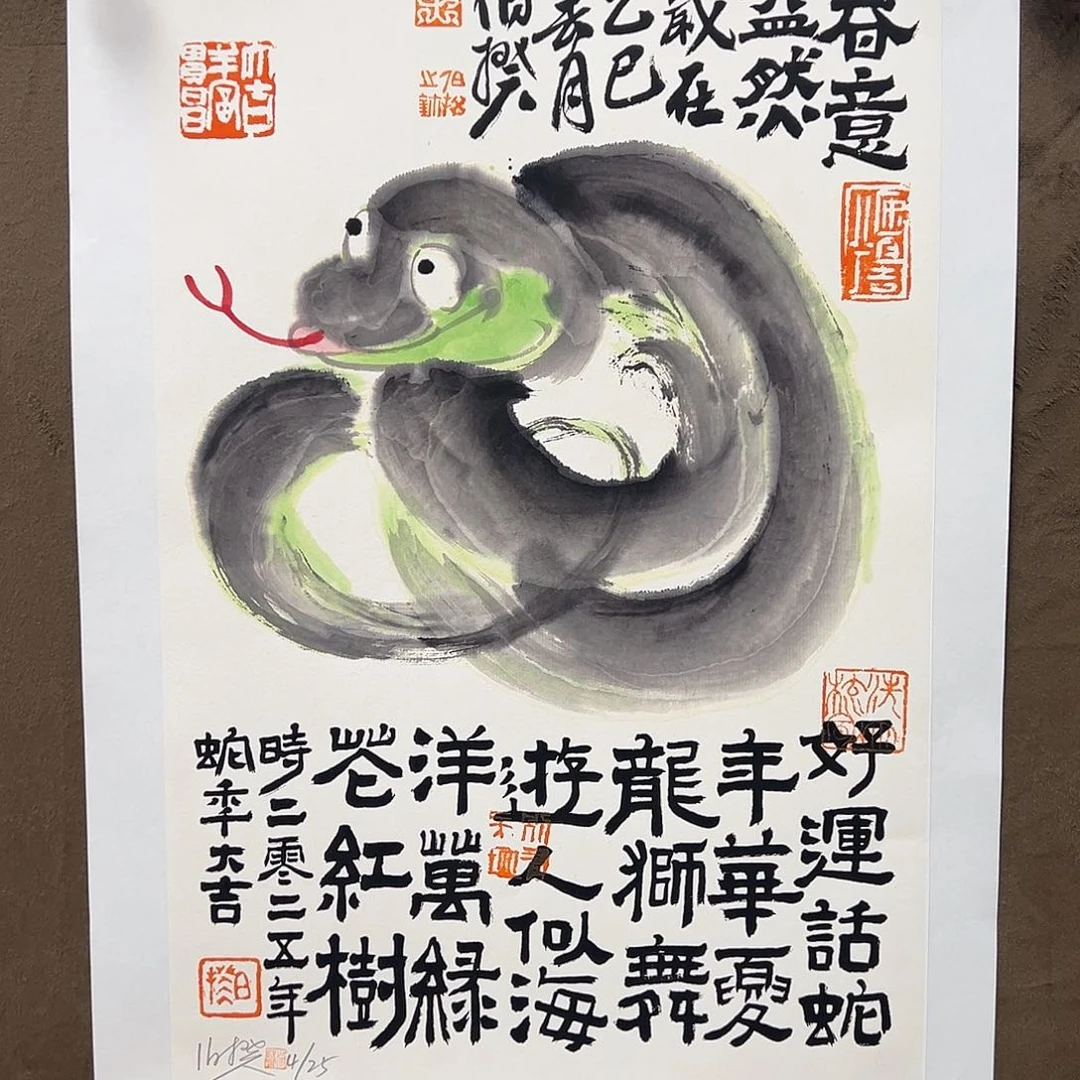 春意
盎然
歲在
乙巳
春月
伯揆
大吉
羊富
貴昌
好運話蛇
年華夏
龍獅舞
遊人似海
洋萬緑
花紅樹
時二零二五年
蛇年大吉
伯揆 4/25